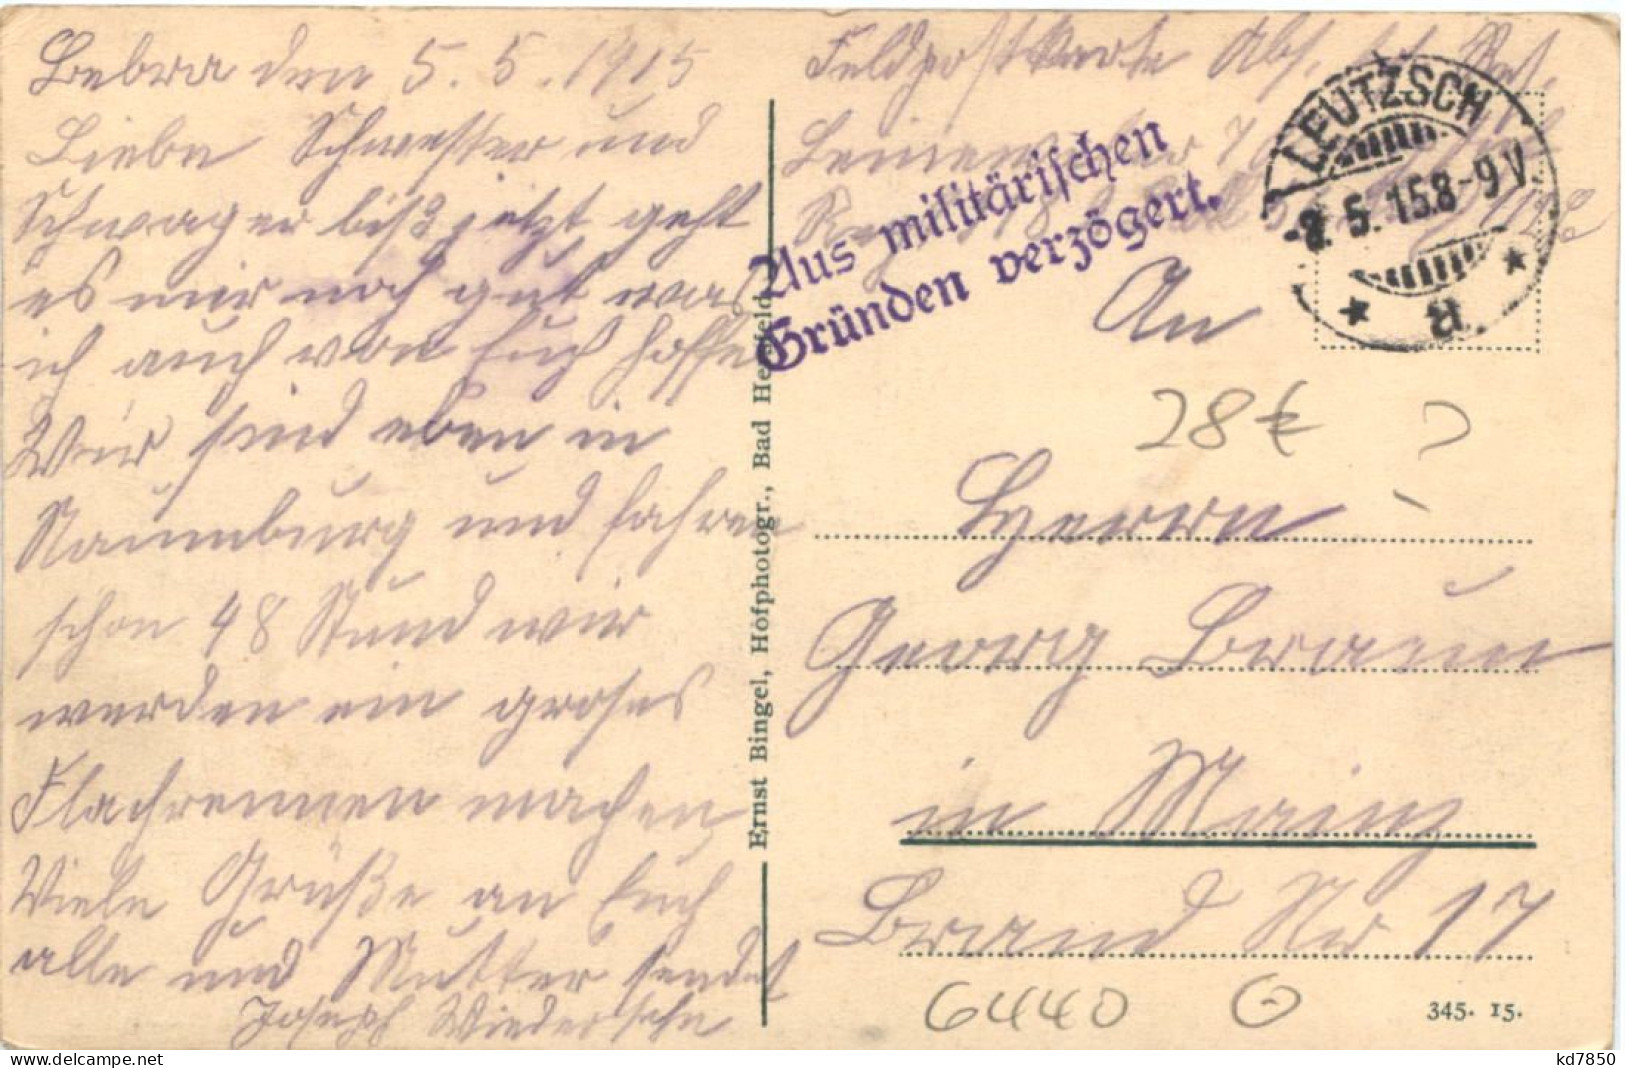 Bebra den 5. 5. 1915
Liebe Schwester und
Schwager biß jetzt geht
es mir noch gut was
ich auch von Euch hoffe
Wir sind eben in
Naumburg und fahren
schon 48 Stund wir
werden ein groses
Flachrennen machen
Viele Grüße an Euch
alle und Mutter sendet
Joseph Wiedersehn
Ernst Bingel, Hofphotogr., Bad Hersfeld.
Feldpostkarte Abs.
Aus militärischen
Gründen verzögert.
LEUTZSCH
8. 5. 15 8-9 V
a
An
28 €
Herrn
Georg Braun
in Mainz
Brand Nr 17
6440
345. 15.
kd7850